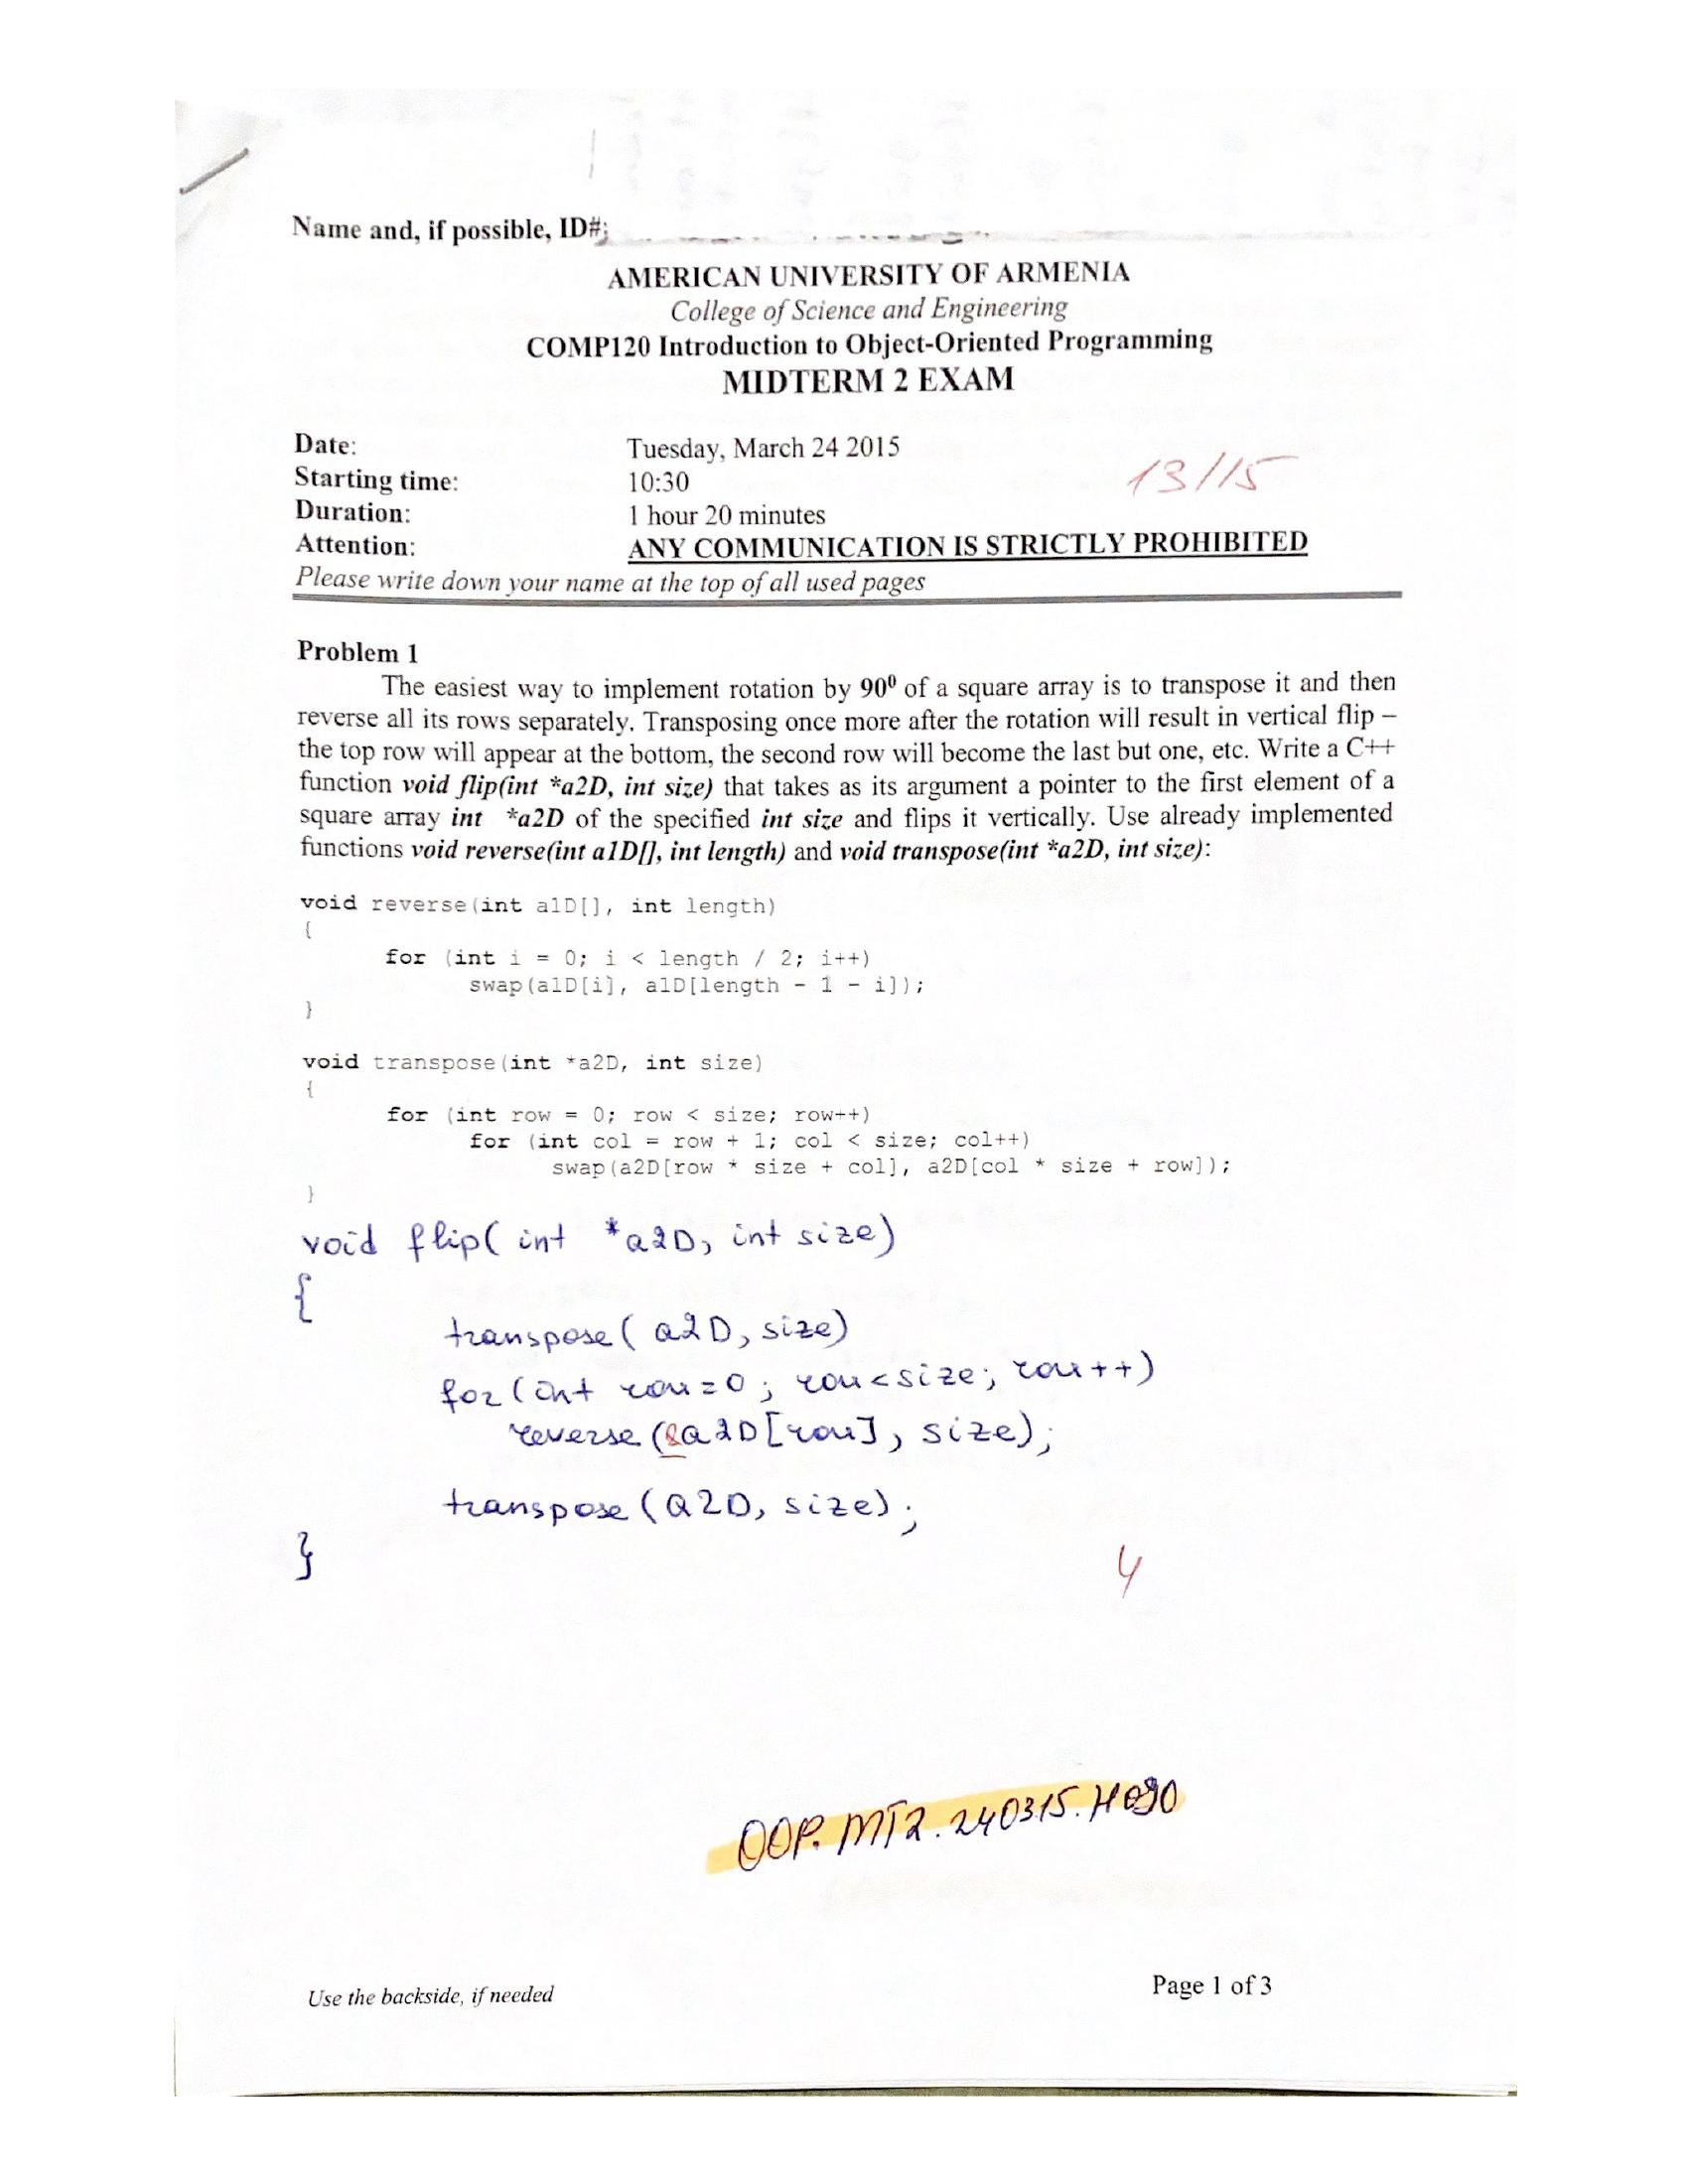 Name and, if possible, ID#:
AMERICAN UNIVERSITY OF ARMENIA
College of Science and Engineering
COMP120 Introduction to Object-Oriented Programming
MIDTERM 2 EXAM
Date: Tuesday, March 24 2015
13/15
Starting time: 10:30
Duration: 1 hour 20 minutes
Attention: ANY COMMUNICATION IS STRICTLY PROHIBITED
Please write down your name at the top of all used pages
Problem 1
The easiest way to implement rotation by 90⁰ of a square array is to transpose it and then
reverse all its rows separately. Transposing once more after the rotation will result in vertical flip –
the top row will appear at the bottom, the second row will become the last but one, etc. Write a C++
function void flip(int *a2D, int size) that takes as its argument a pointer to the first element of a
square array int *a2D of the specified int size and flips it vertically. Use already implemented
functions void reverse(int a1D[], int length) and void transpose(int *a2D, int size):
void reverse(int a1D[], int length)
{
for (int i = 0; i < length / 2; i++)
swap(a1D[i], a1D[length - 1 - i]);
}
void transpose(int *a2D, int size)
{
for (int row = 0; row < size; row++)
for (int col = row + 1; col < size; col++)
swap(a2D[row * size + col], a2D[col * size + row]);
}
void flip( int *a2D, int size)
{
transpose( a2D, size)
for(int row=0; row<size; row++)
reverse(&a2D[row], size);
transpose(a2D, size);
}
4
OOP. MT2. 240315. H090
Use the backside, if needed
Page 1 of 3